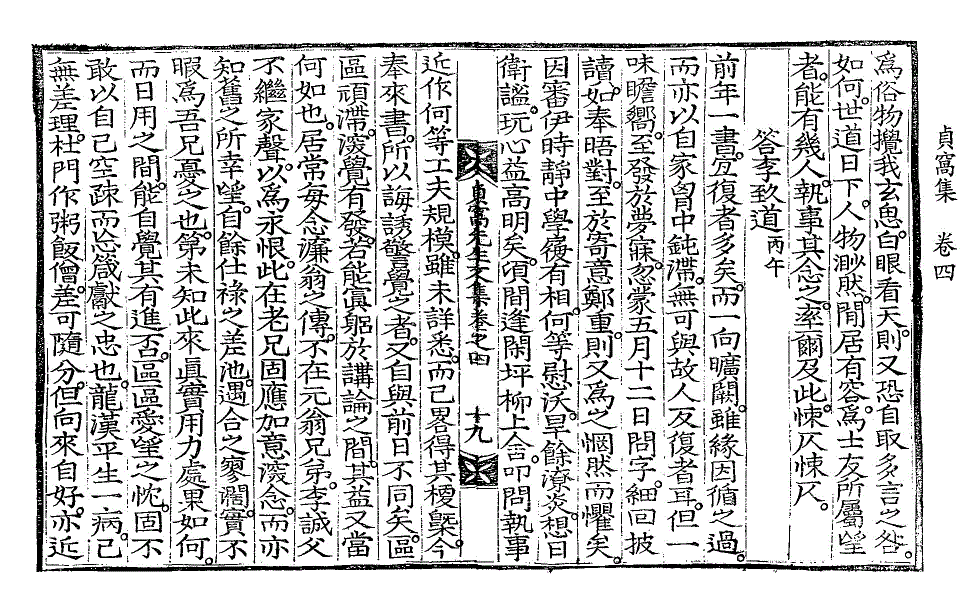 貞窩集 卷四
爲俗物攪我玄思。白眼看天。則又恐自取多言之咎。
如何。世道日下。人物渺然。閒居有容。爲士友所屬望
者。能有幾人。執事其念之。率爾及此。悚仄悚仄。
答李致道 丙午
前年一書。宐復者多矣。而一向曠闕。雖緣因循之過。
而亦以自家胷中鈍滯。無可與故人反復者耳。但一
味瞻嚮。至發於夢寐。忽蒙五月十二日問字。細回披
讀。如奉晤對。至於寄意鄭重。則又爲之惘然而懼矣。
因審伊時靜中學履有相。何等慰沃。早餘潦炎。想日
衛謐。玩心益高明矣。頃間逢閑坪柳上舍。叩問執事
貞窩先生文集卷之四 十九
近作何等工夫規模。雖未詳悉。而已畧得其梗槩。今
奉來書。所以誨誘警覺之者。又自與前日不同矣。區
區頑滯。滚覺有發。若能眞躳於講論之間。其益又當
何如也。居常每念濂翁之傳。不在元翁兄弟。李誠父
不繼家聲。以爲永恨。此在老兄固應加意滚念。而亦
知舊之所幸望。自餘仕祿之差池。遇合之寥濶。實不
暇爲吾兄憂之也。第未知此來眞實用力處果如何。
而日用之間。能自覺其有進否。區區愛望之忱。固不
敢以自己空疎而忘箴獻之忠也。龍漢平生一病。已
無差理。杜門作粥飯僧。差可隨分。但向來自好。亦近